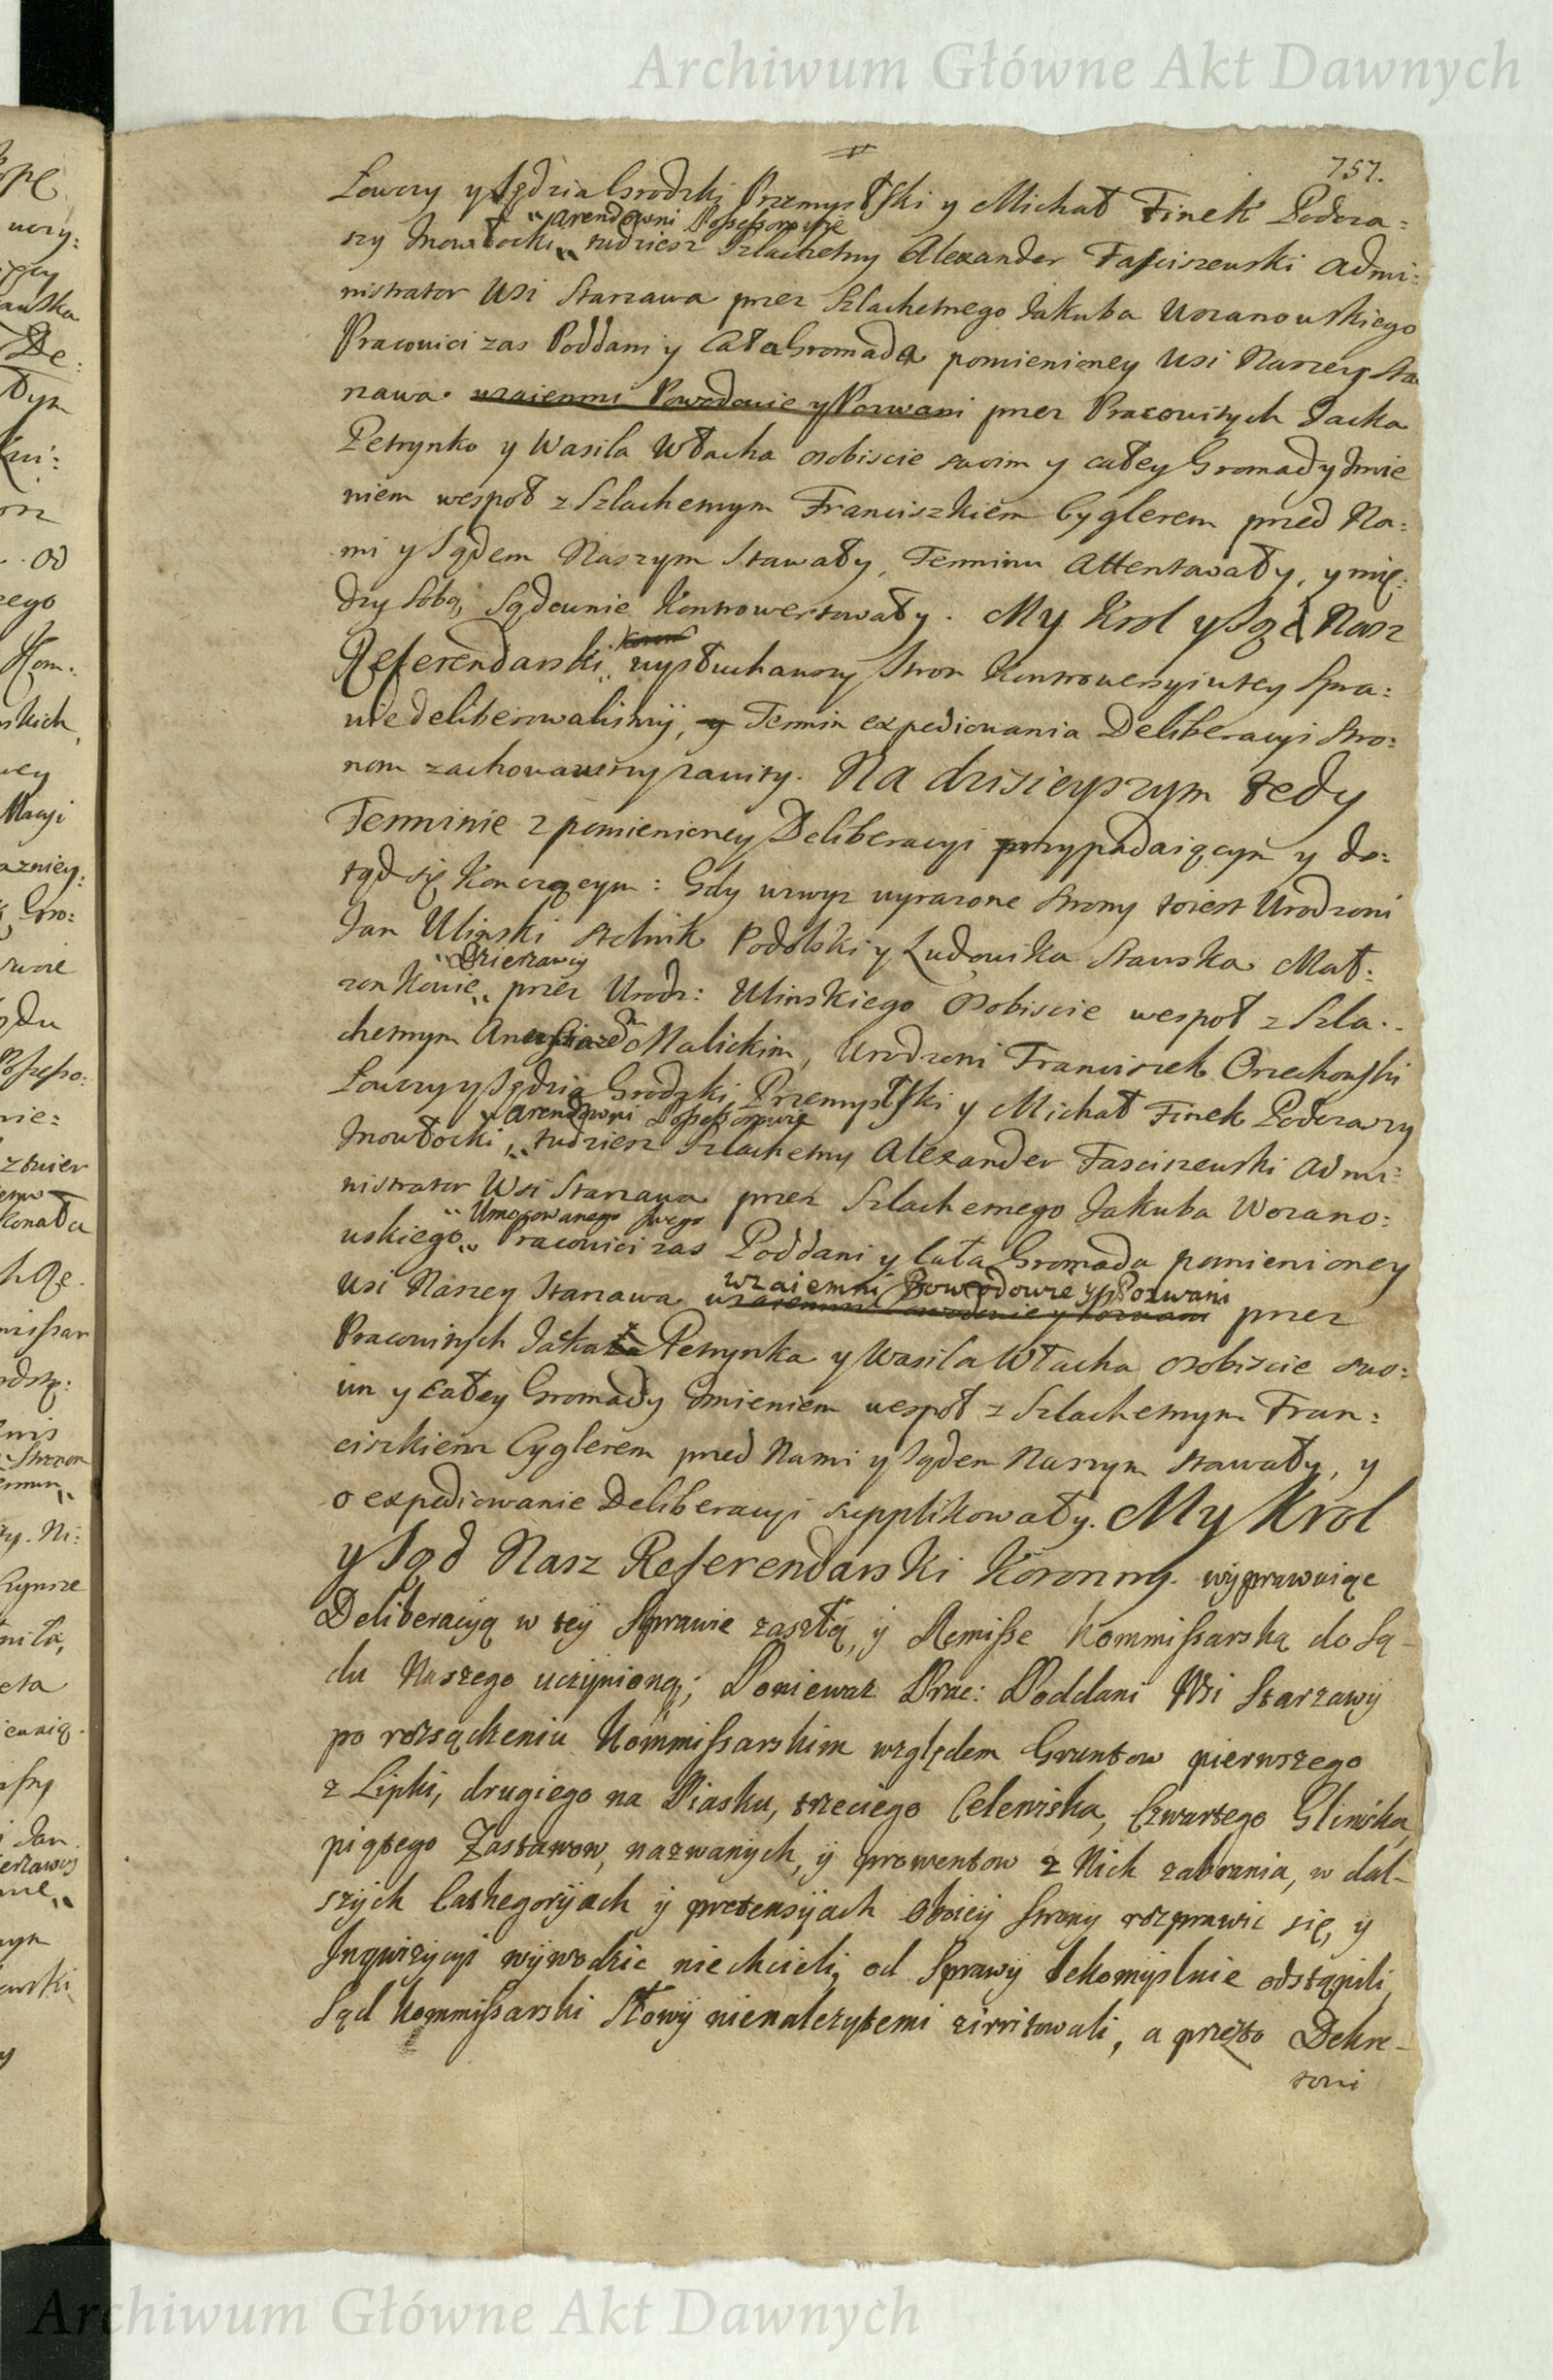 Archiwum Główne Akt Dawnych
757.
Łowczy y Sędzia Grodzki Przemyslski y Michał Finek Podcza=
„Arendowni Possessorowie
szy Inowłocki„ tudziesz Szlachetny Alexander Fasciszewski Admi=
nistrator Wsi Starzawa przez Szlachetnego Jakuba Wozanowskiego
Pracowici zas Poddani y Cała Gromada pomienioney Wsi Naszey Sta
rzawa wzaiemni Powodowie y Pozwani przez Pracowitych Jacka
Petrynko y Wasila Włacha osobiscie swoim y całey Gromady Imie
niem wespoł z Szlachetnym Franciszkiem Cyglerem przed Na=
mi y Sądem Naszym stawały, Terminu Attentowały, y mię=
dzy sobą, Sądownie Kontrowertowały. My Krol y Sąd Nasz
Referendarski wysłuchawszy Stron Kontrowersyi w tey Spra=
wie deliberowalismy, y Termin expediowania Deliberacyi Stro=
nom zachowawszy zawity. Na dzisieyszym tedy
Terminie z pomienioney Deliberacyi przypadaiącym y do=
tąd się Konczącym: Gdy wzwyz wyrazone Strony toiest Urodzeni
Jan Ulinski Stolnik Podolski y Ludowika Stawska Mał=
„Dzierzawcy
zonkowie„ przez Urodz: Ulinskiego Osobiscie wespoł z Szla=
chetnym Malickim, Urodzeni Franciszek Orzechowski
Łowczy y Sędzia Grodzki Przemyslski y Michał Finek Podczaszy
„Arendowni Possessorowie
Inowłocki„ tudziesz Szlachetny Alexander Fasciszewski Admi=
nistrator Wsi Starzawa przez Szlachetnego Jakuba Wozano=
„Umocowanego swego
wskiego„ Pracowici zas Poddani y Cała Gromada pomienioney
wzaiemni Powodowie y Pozwani
Wsi Naszey Starzawa wzaiemni Powodowie y Pozwani przez
Pracowitych Petrynka y Wasila Włacha osobiscie swo=
im y całey Gromady Imieniem wespoł z Szlachetnym Fran=
ciszkiem Cyglerem przed Nami y Sądem Naszym stawały, y
o expediowanie Deliberacyi supplikowały. My Krol
y Sąd Nasz Referendarski Koronny wyprawuiąc
Deliberacyą w tey Sprawie zaszłą, y Remisse Kommissarską do Są-
du Naszego uczynioną; Poniewaz Prac: Poddani Wsi Starzawy
po rozsądzeniu Kommissarskim względem Gruntow pierwszego
z Lipki, drugiego na Piasku, trzeciego Celewiska, Czwartego Gliniska,
piątego Zastawow, nazwanych, y prowentow z Nich zabrania, w dal-
szych Cathegoryach y pretensyach oboiey Strony rozprawic się, y
Inqwizycyi wywodzic niechcieli, od Sprawy lekomyslnie odstąpili,
Sąd Kommissarski Słowy nienalezytemi zirritowali, a przeto Dekre-
towi
Archiwum Główne Akt Dawnych